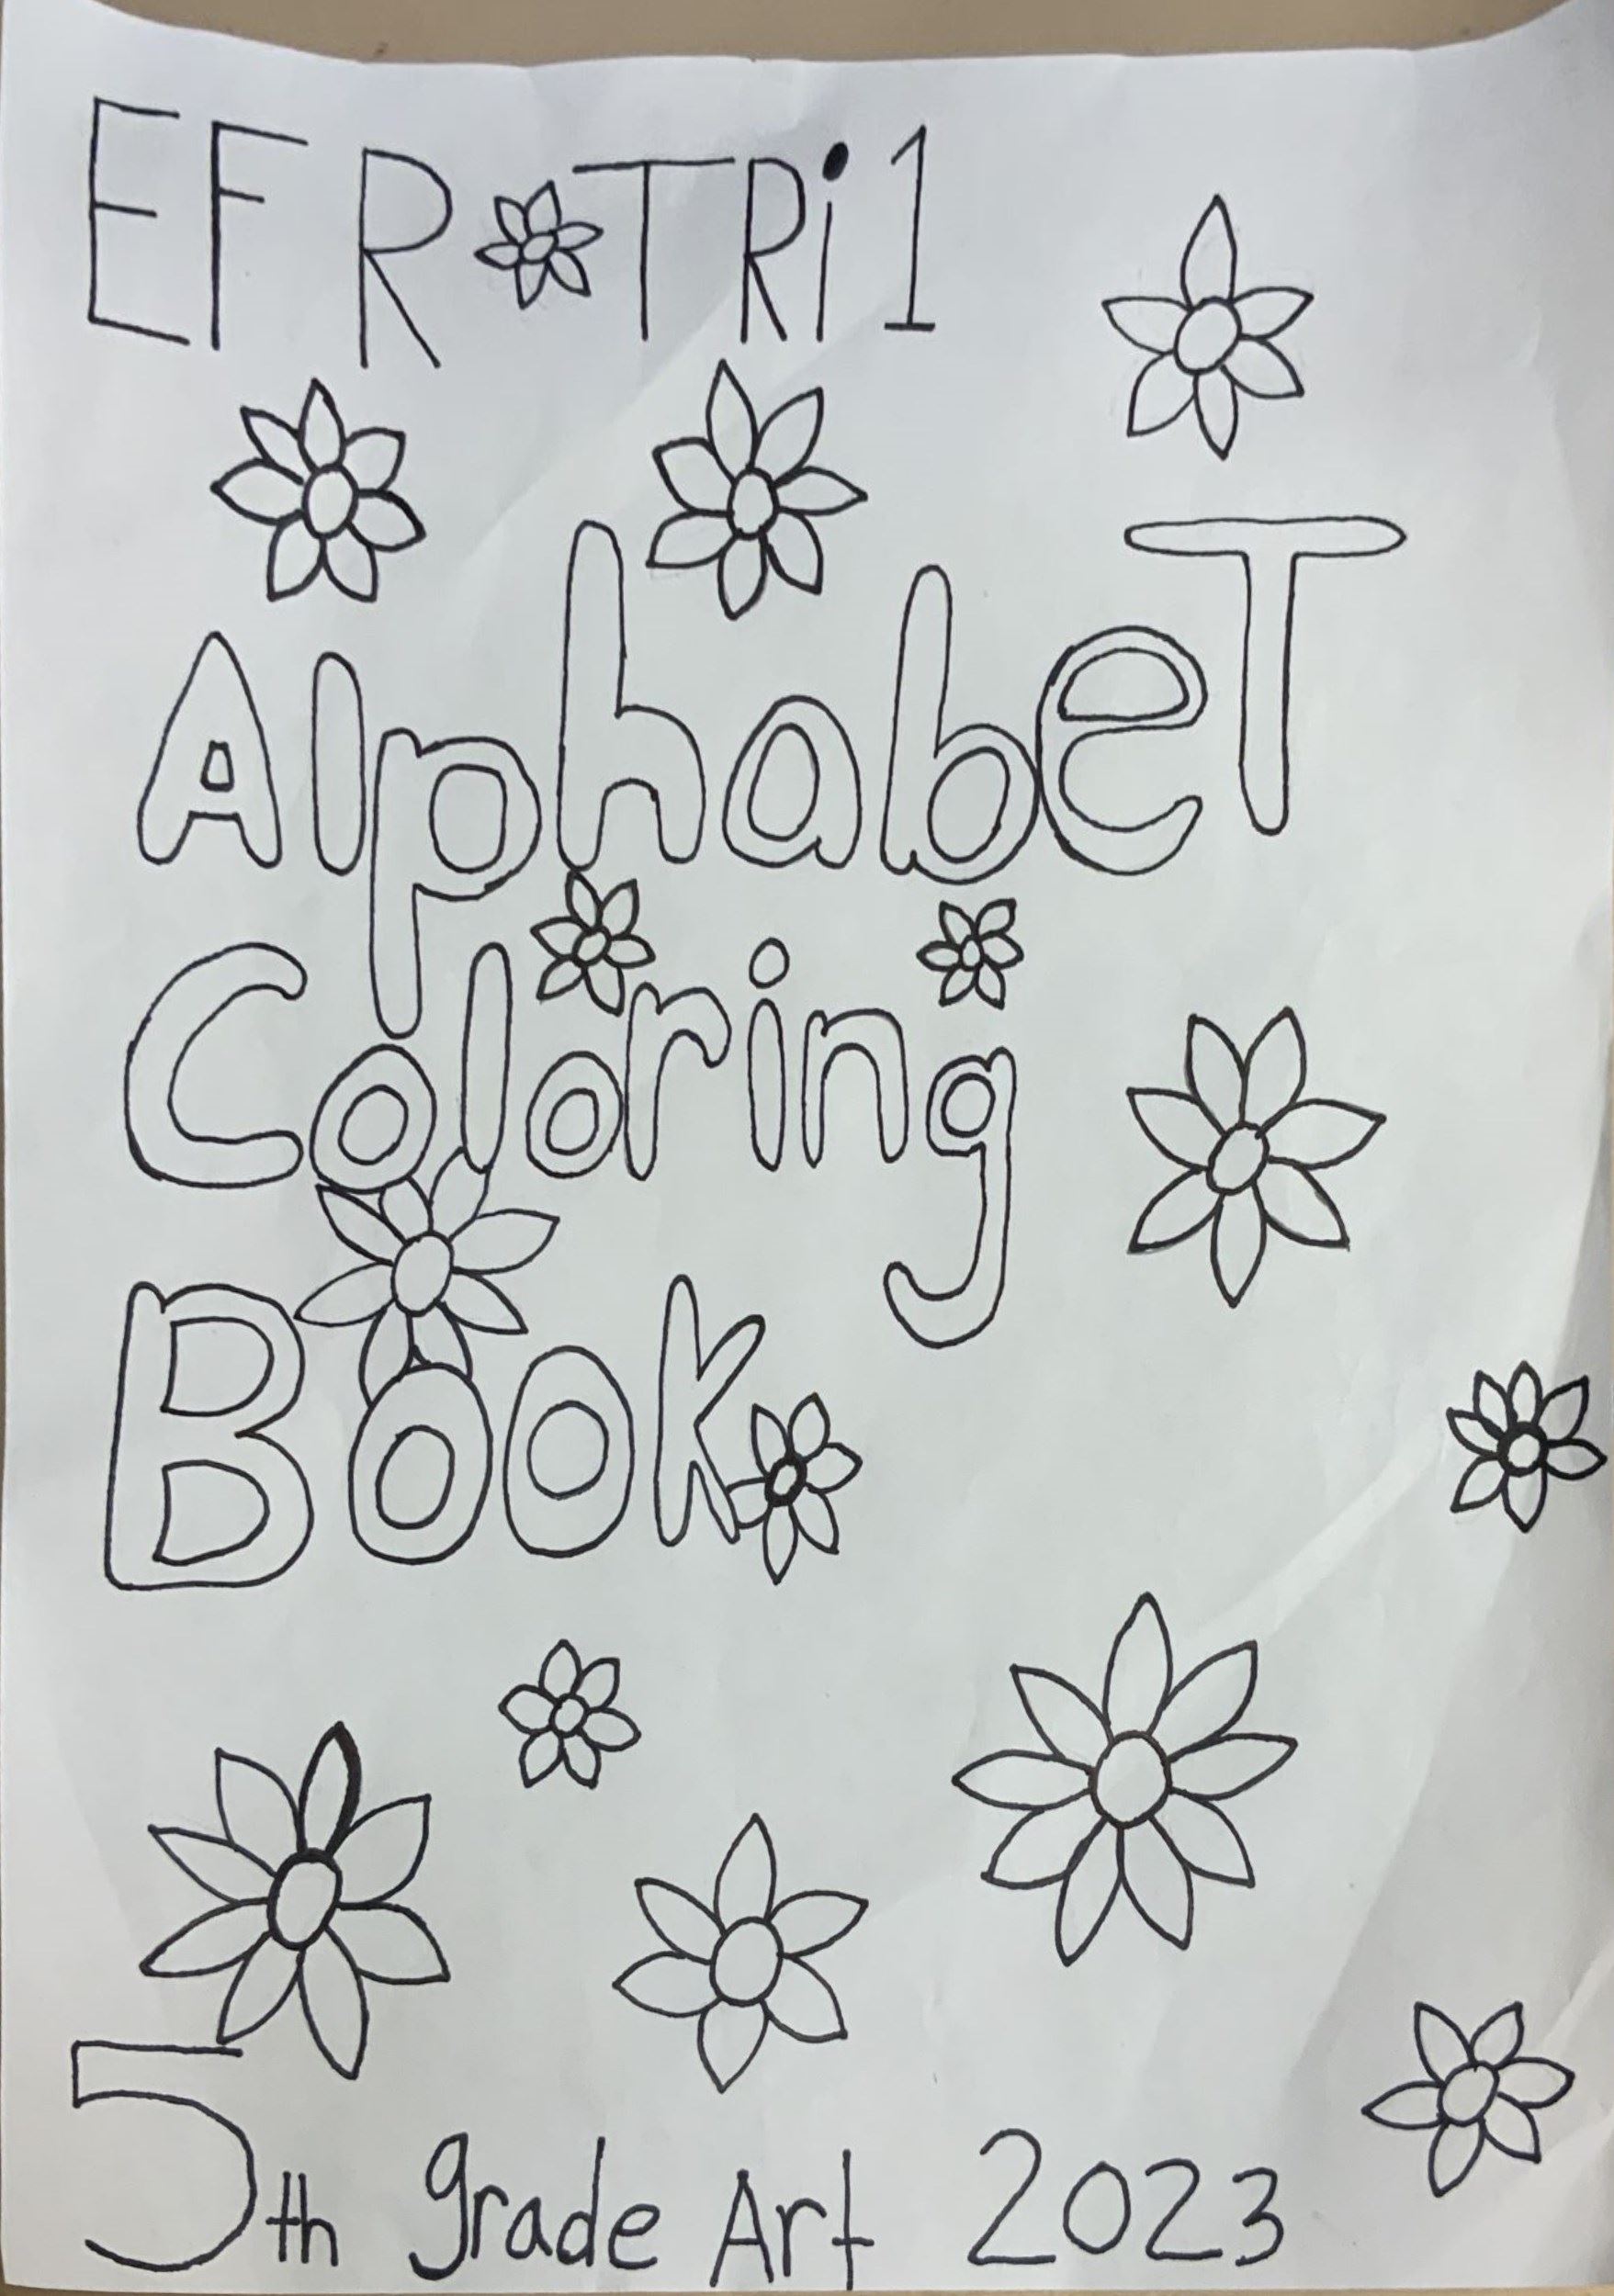 EFR TRi 1
AlphabeT
Coloring
Book
5th grade Art 2023